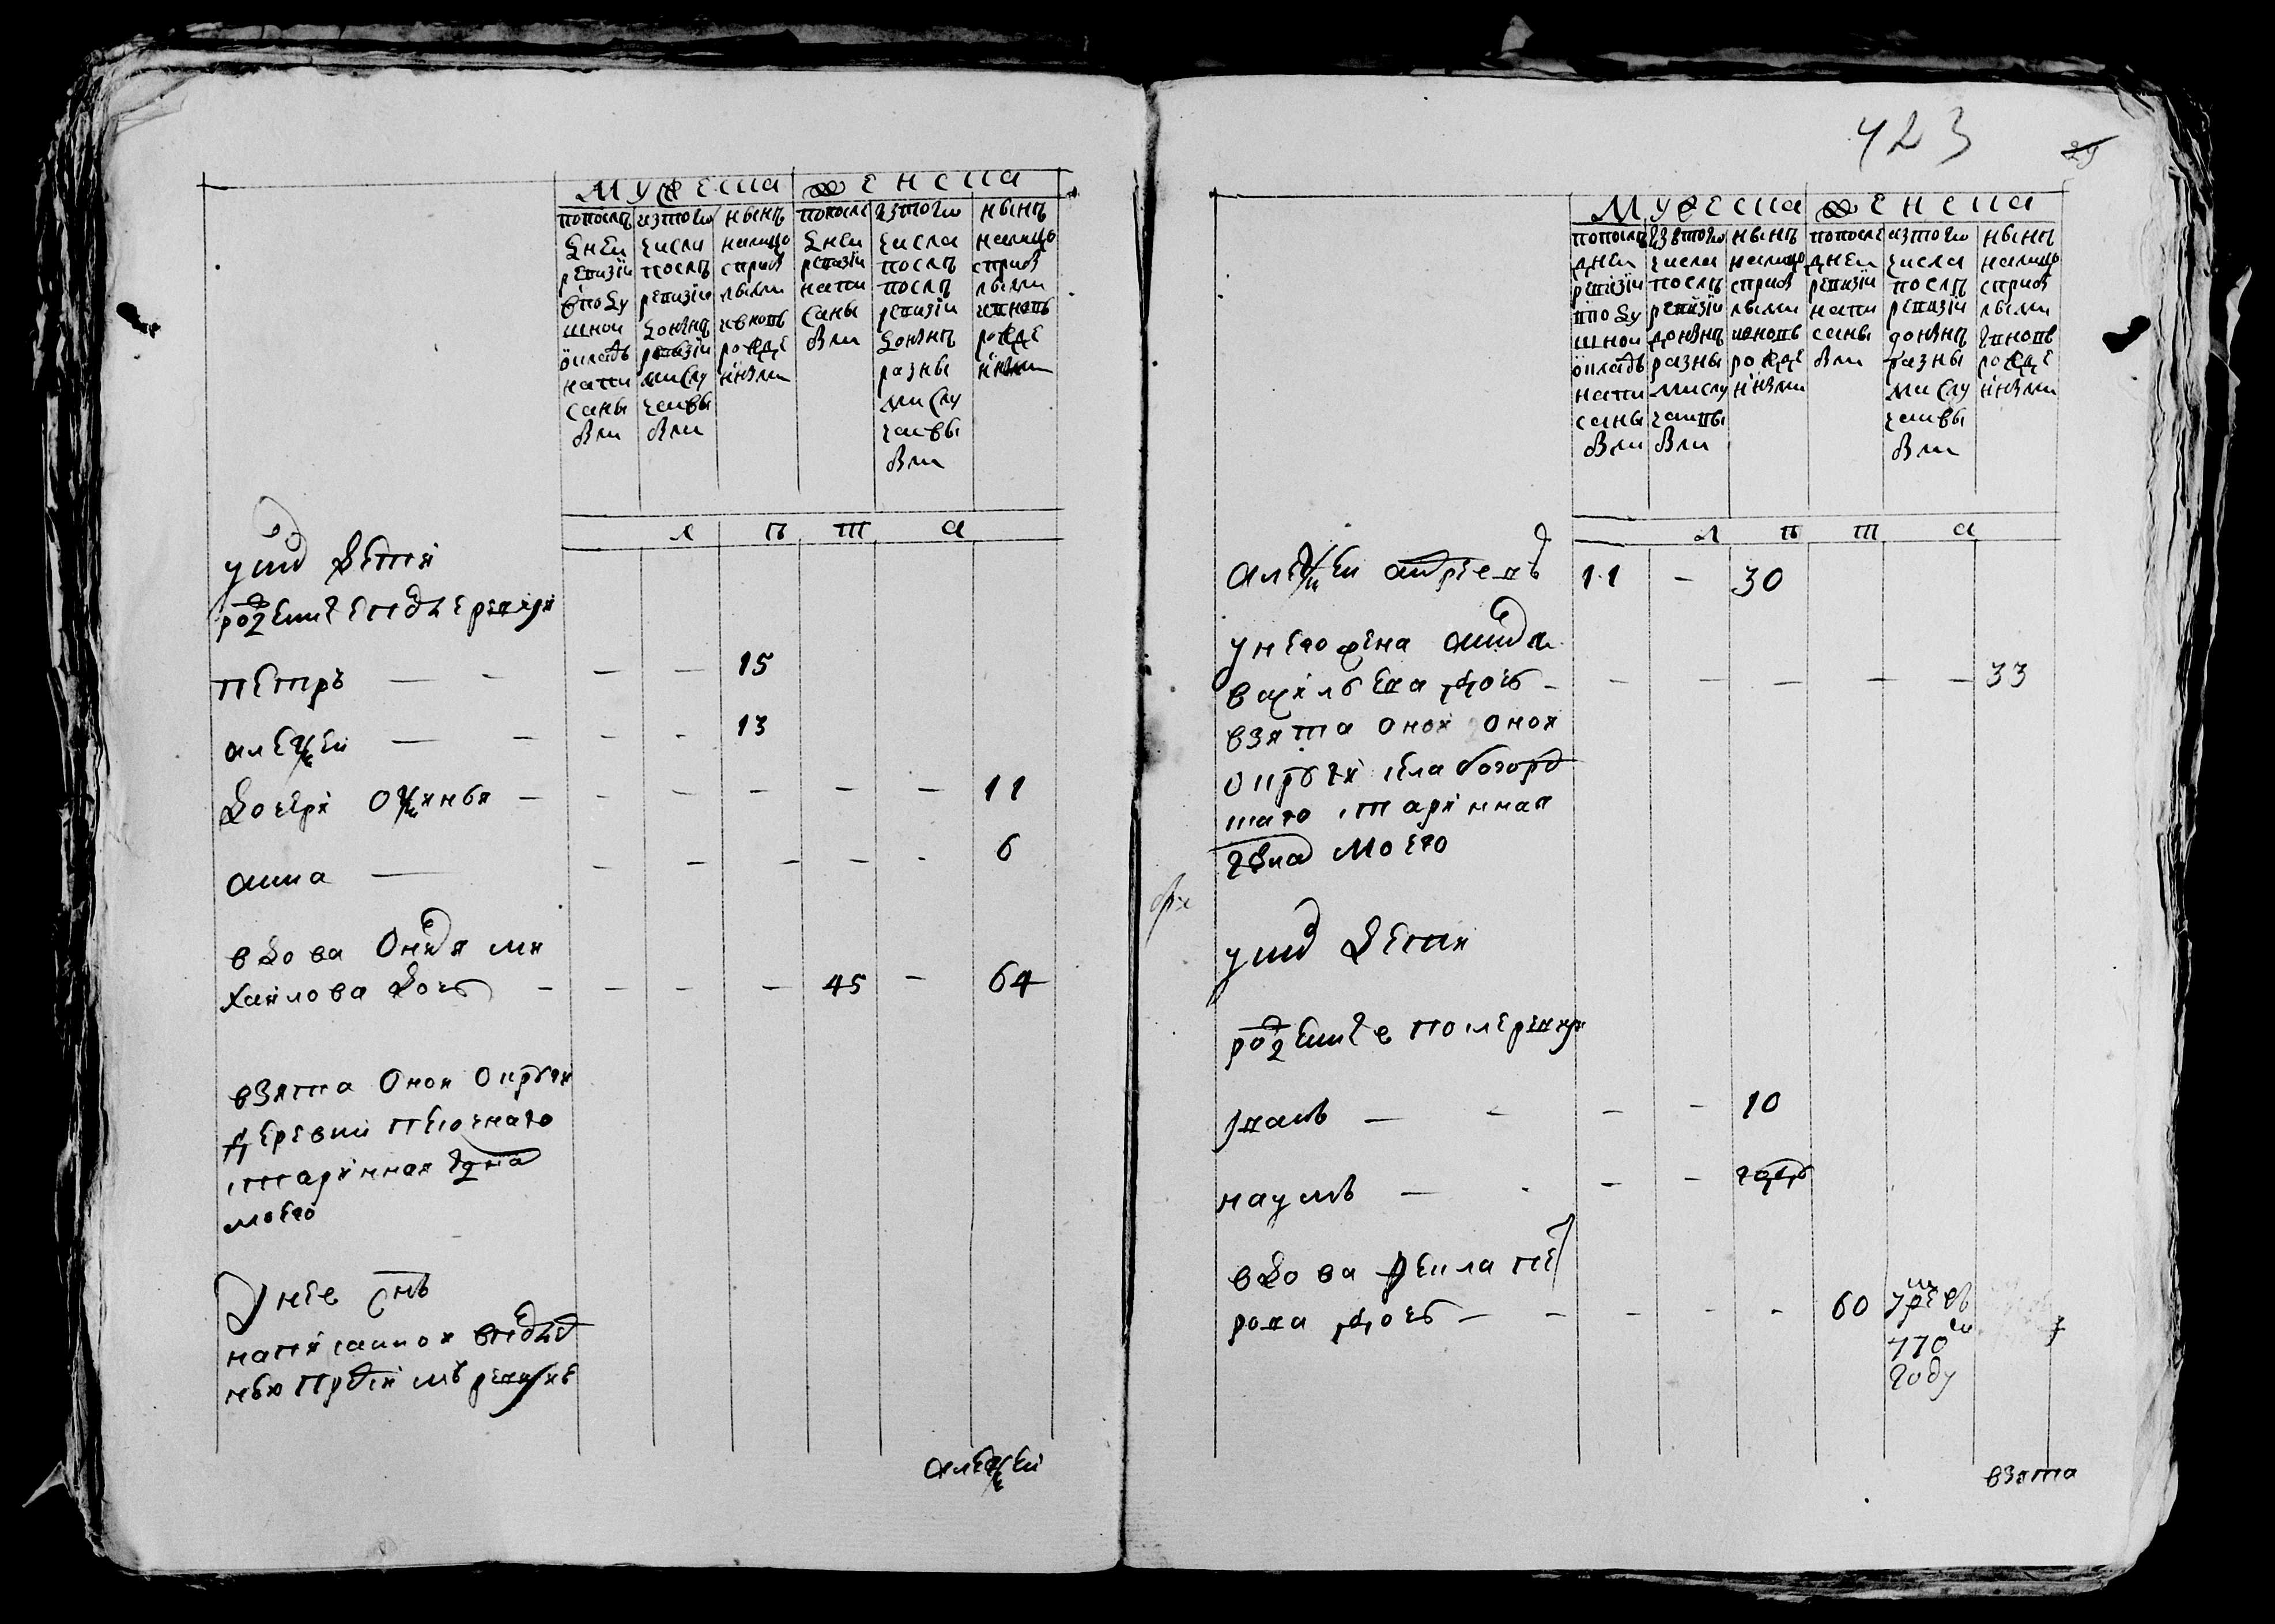 мужеска женска
попослѣ
дней
ревизіи
вподу
шной
окладъ
напи
саны
были
изтого
числа
послѣ
ревизіи
донынѣ
разны
ми слу
чаивы
были
нынѣ
налицо
сприб
лыми
ивновь
рожде
нными
попосле
дней
ревизіи
напи
саны
были
изтого
числа
послѣ
ревизіи
донынѣ
разны
ми слу
чаивы
были
нынѣ
налицо
сприб
лыми
ивновь
рожде
нными
л ѣ т а
у них дети
рожденные после ревизии
петръ — - — — 15
алексеи — - - - 13
дочери оксинья - - - - - - 11
анна — - - - - - 6
вдова Ондя ми
хаилова дочь - - - - 45 - 64
взята оной округи
деревни песочнаго
старинная гдна
моего
У нее снъ
написанной впослед
нею пред симъ ревизие
алексеи
423
29
мужеска женска
попослѣ
дней
ревизіи
вподу
шной
окладъ
напи
саны
были
изтого
числа
послѣ
ревизіи
донынѣ
разны
ми слу
чаивы
были
нынѣ
налицо
сприб
лыми
ивновь
рожде
нными
попосле
дней
ревизіи
напи
саны
были
изтого
числа
послѣ
ревизіи
донынѣ
разны
ми слу
чаивы
были
нынѣ
налицо
сприб
лыми
ивновь
рожде
нными
л ѣ т а
алексеи андреевъ 11 - 30
у него жена анна
васильева дочь - - - - - - 33
взята оной
округи села богород
скаго старинная
гдна моего
у них дети
рожденные после ревизии
иванъ — - - - 10
наумъ — - - - годъ
вдова фекла пет
рова дочь - - - - - 60 умре въ
770м
году
взята